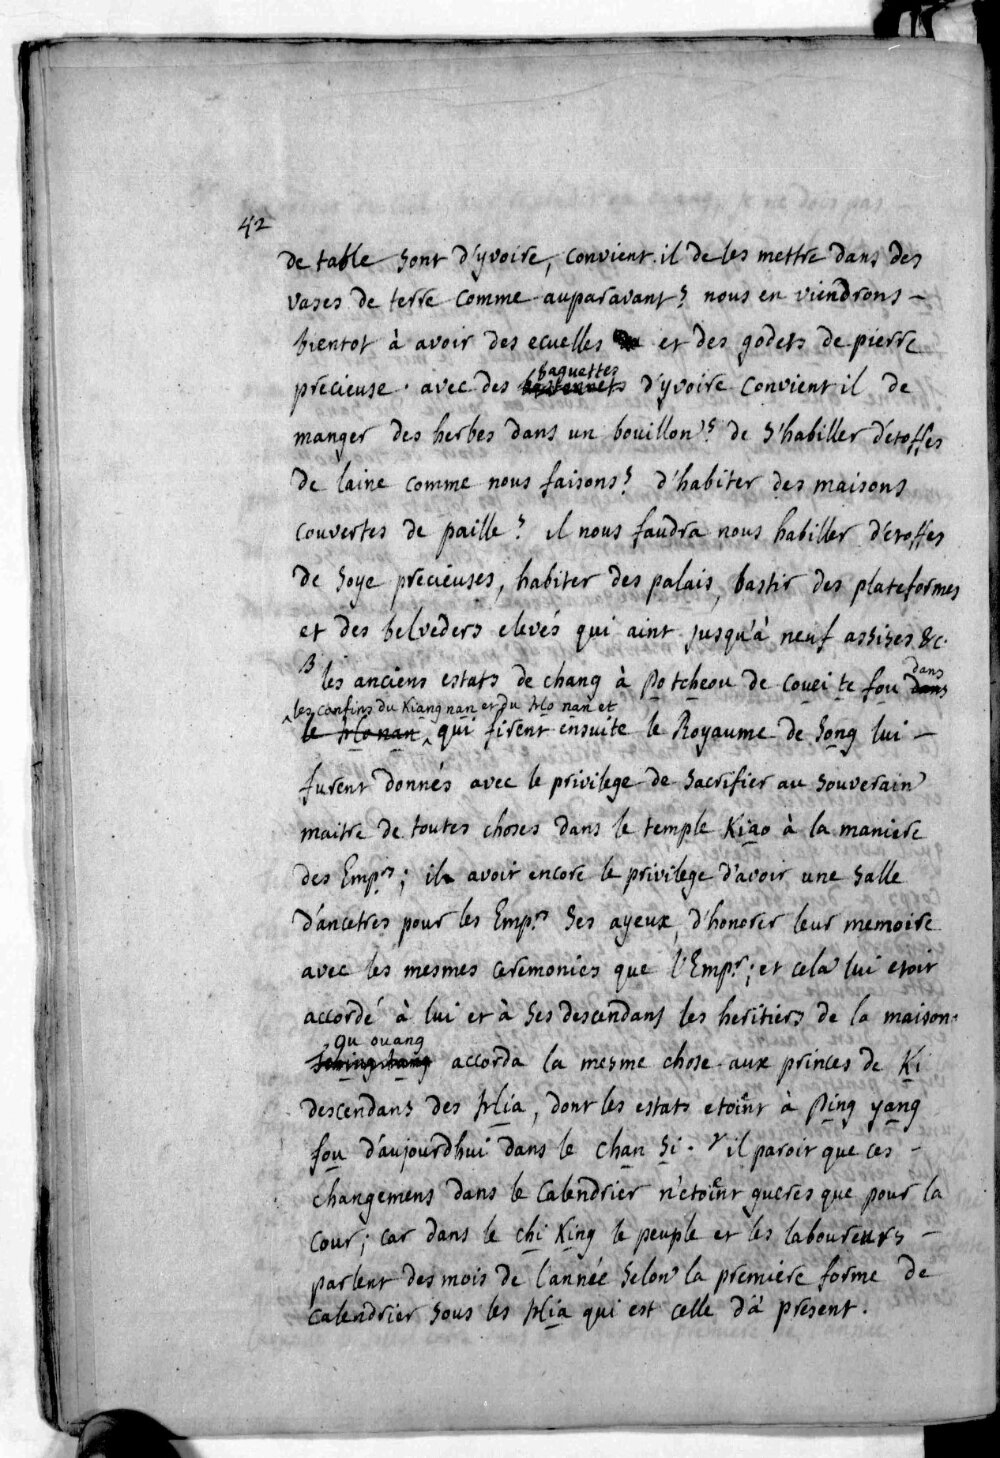 42
de table sont d'yvoire, convient il de les mettre dans des
vases de terre comme auparavant? nous en viendrons –
bientot à avoir des ecuelles et des godets de pierre
baguettes
precieuse. avec des d'yvoire convient il de
manger des herbes dans un bouillon? de s'habiller d'etoffes
de laine comme nous faisons? d'habiter des maisons
couvertes de paille? il nous faudra nous habiller d'etoffes
de soye precieuses, habiter des palais, bastir des plateformes
et des belveders elevés qui aint jusqu'à neuf assises &c.
B les anciens estats de chang à po tcheou de couei te fou dans dans
les confins du Kiang nan et du Ho nan et
le Ho nan, qui firent ensuite le Royaume de Song lui –
furent donnés avec le privilege de sacrifier au souverain
maitre de toutes choses dans le temple Kiao à la maniere
des Emprs; il avoit encore le privilege d'avoir une salle
d'ancetres pour les Emprs ses ayeux, d'honorer leur memoire
avec les mesmes ceremonies que l'Empr; et cela lui etoit
accordé à lui et à ses descendans les heritiers de la maison.
Ou ouang
Tching tang accorda la mesme chose aux princes de Ki
descendans des Hia, dont les estats etoint à Ping yang
fou d'aujourdhui dans le chan si. γ il paroit que ces –
changemens dans le calendrier n'etoint gueres que pour la
cour; car dans le chi King le peuple et les laboureurs –
parlent des mois de l'année selon la premiere forme de
calendrier sous les Hia qui est celle d'à present.